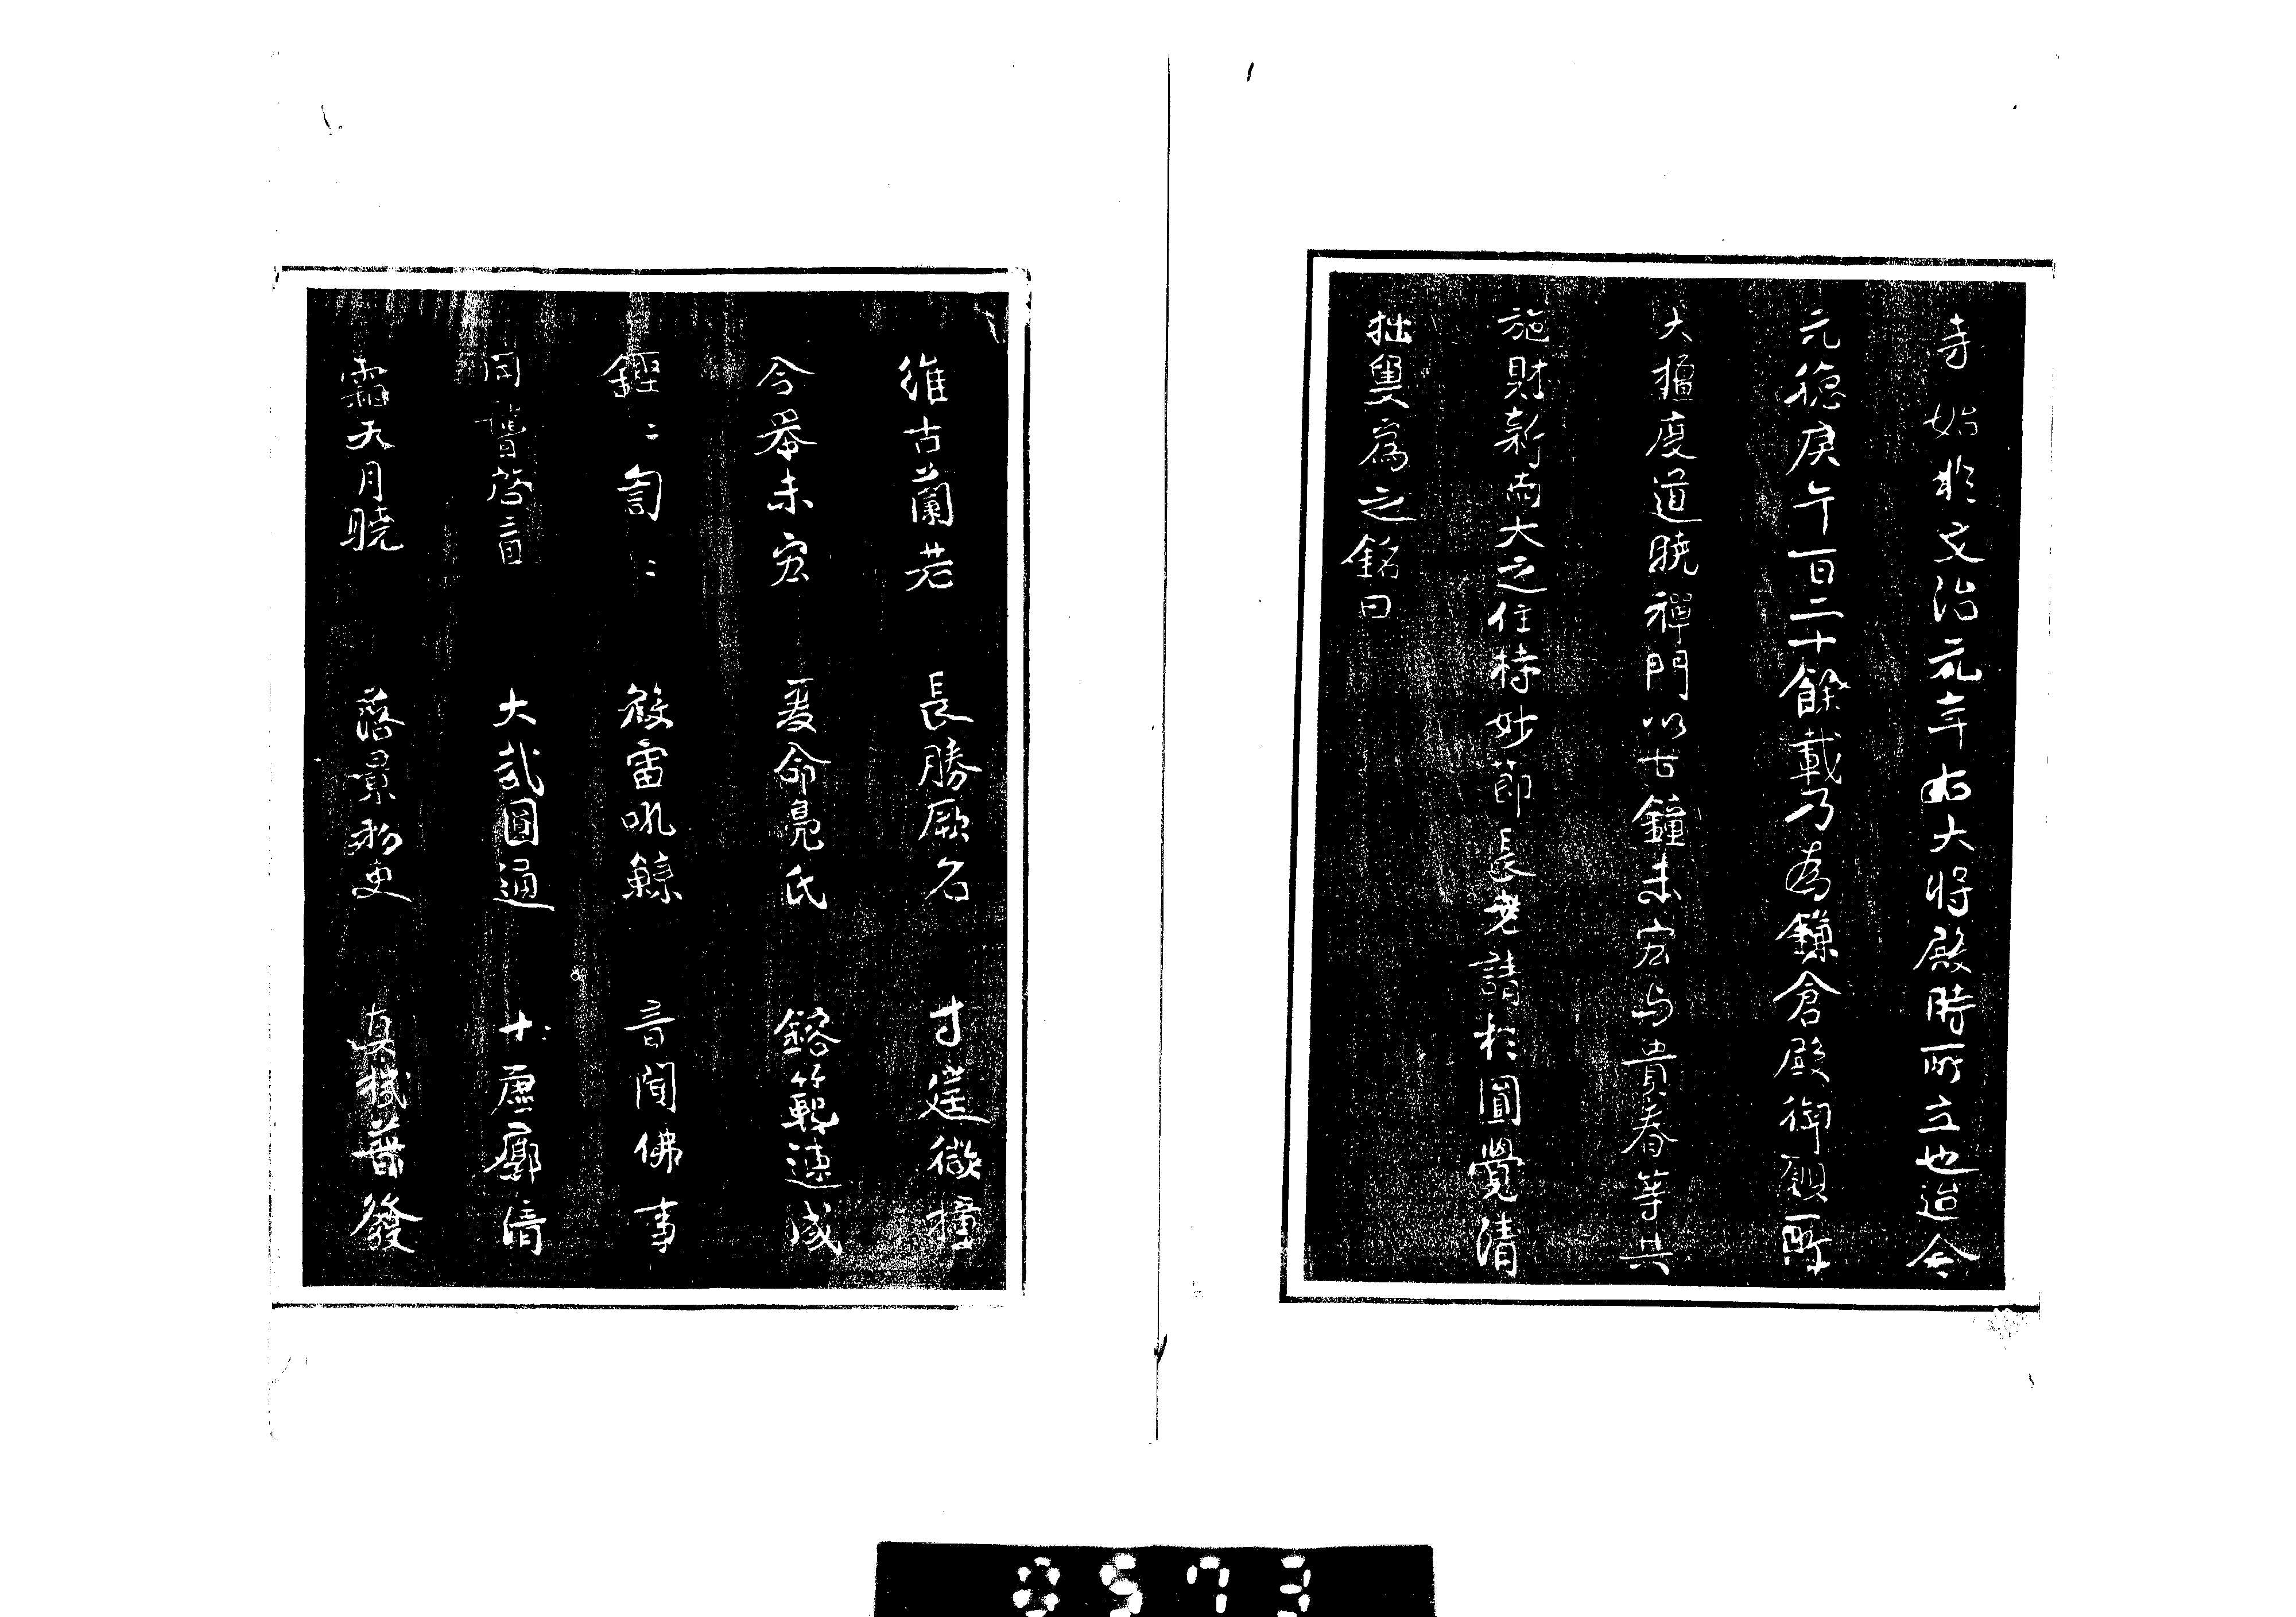 寺始於文治元年右大将殿時所立也迨今
元徳庚午一百二十餘載乃為鎌倉殿御願所
大檀度道暁禅門以古鐘未宏与貴春等其
施財新而大之住持妙節長老請於圓覺清
拙叟為之銘曰
維古蘭若 長勝厥名 寸莛微撞
今舉未宏 爰命鳧氏 鎔範速成
鏗〻訇〻 殷雷吼鯨 音聞佛事
開聾啓盲 大哉圓通 十虚廓清
霜天月暁 落景 真機普發
0573